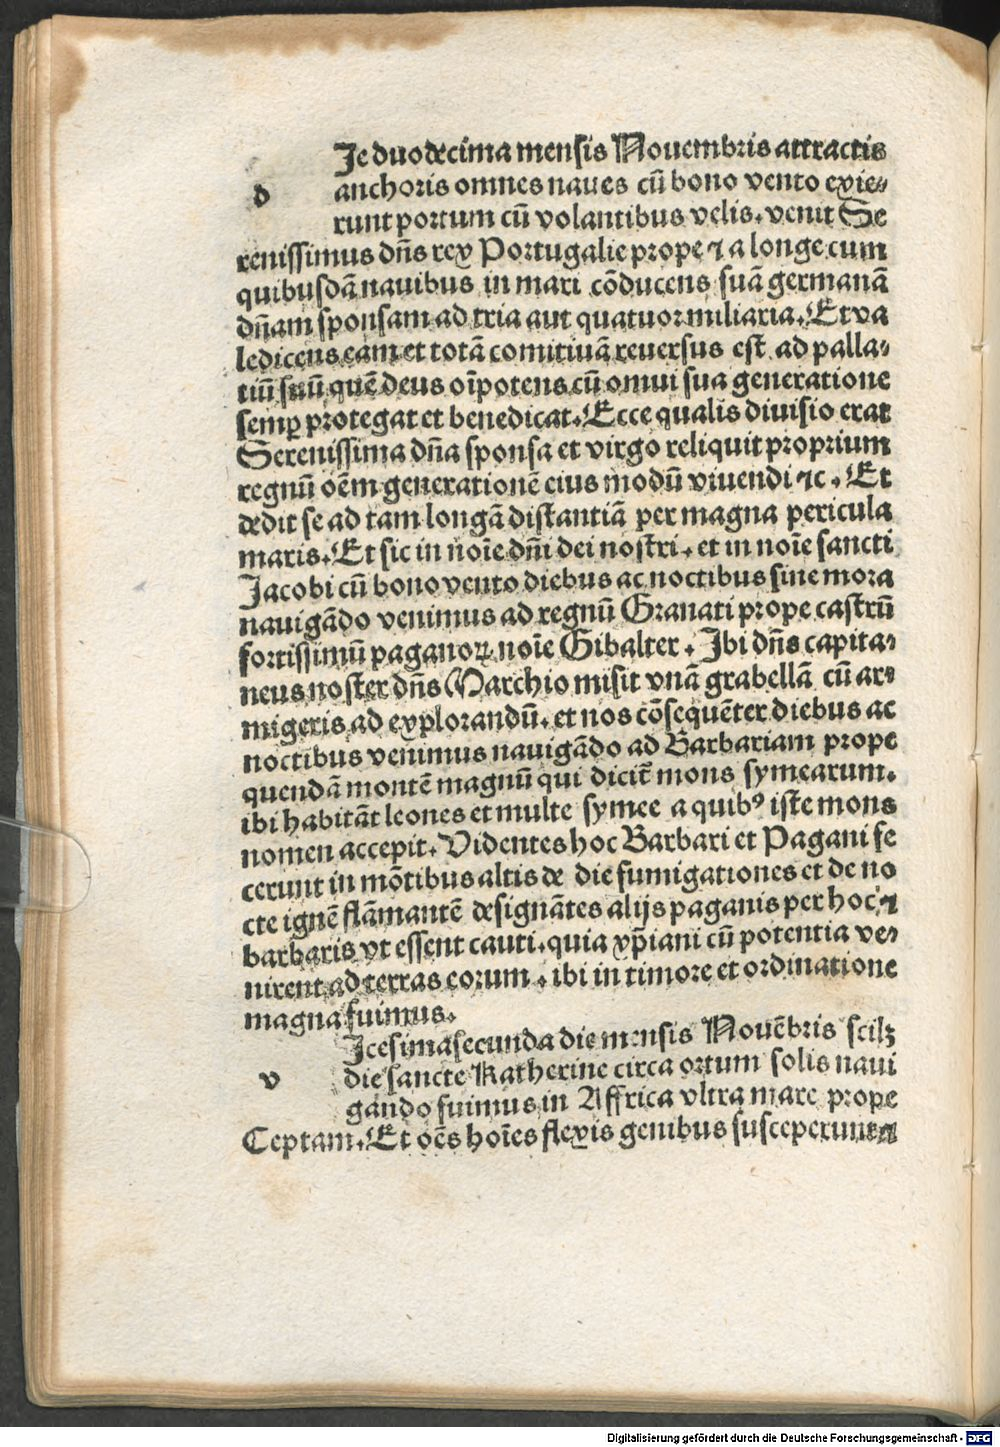 d
Ie duodecima mensis Nouembris attractis
anchoris omnes naues cū bono vento exie⸗
runt portum cū volantibus velis. venit Se
renissimus dn̄s rex Portugalie prope ⁊ a longe cum
quibusdā nauibus in mari cōducens suā germanā
dn̄am sponsam ad tria aut quatuor miliaria. Et va
ledicens eam et totā comitiuā reuersus est ad palla⸗
tiū suū quē deus oīpotens cū omni sua generatione
semꝑ protegat et benedicat. Ecce qualis diuisio erat
Serenissima dn̄a sponsa et virgo reliquit proprium
regnū oēm generationē eius modū viuendi ⁊c. Et
dedit se ad tam longā distantiā per magna pericula
maris. Et sic in noīe dn̄i dei nostri. et in noīe sancti
Jacobi cū bono vento diebus ac noctibus sine mora
nauigādo venimus ad regnū Granati prope castrū
fortissimū paganoꝝ noīe Gibalter. Ibi dn̄s capita⸗
neus noster dn̄s Marchio misit vnā grabellā cū ar⸗
migeris ad explorandū. et nos cōsequēter diebus ac
noctibus venimus nauigādo ad Barbariam prope
quendā montē magnū qui dicit̄ mons symearum.
ibi habitāt leones et multe symee a quibꝰ iste mons
nomen accepit. Videntes hoc Barbari et Pagani fe
cerunt in mōtibus altis de die fumigationes et de no
cte ignē flāmantē designātes alijs paganis per hoc ⁊
barbaris vt essent cauti. quia xp̄iani cū potentia ve⸗
nirent ad terras eorum. ibi in timore et ordinatione
magna fuimus.
v
Icesimasecunda die mensis Nouēbris scilꝫ
die sancte Katherine circa ortum solis naui
gando fuimus in Affrica vltra mare prope
Ceptam. Et oēs hoīes flexis genibus susceperunt
Digitalisierung gefördert durch die Deutsche Forschungsgemeinschaft - DFG